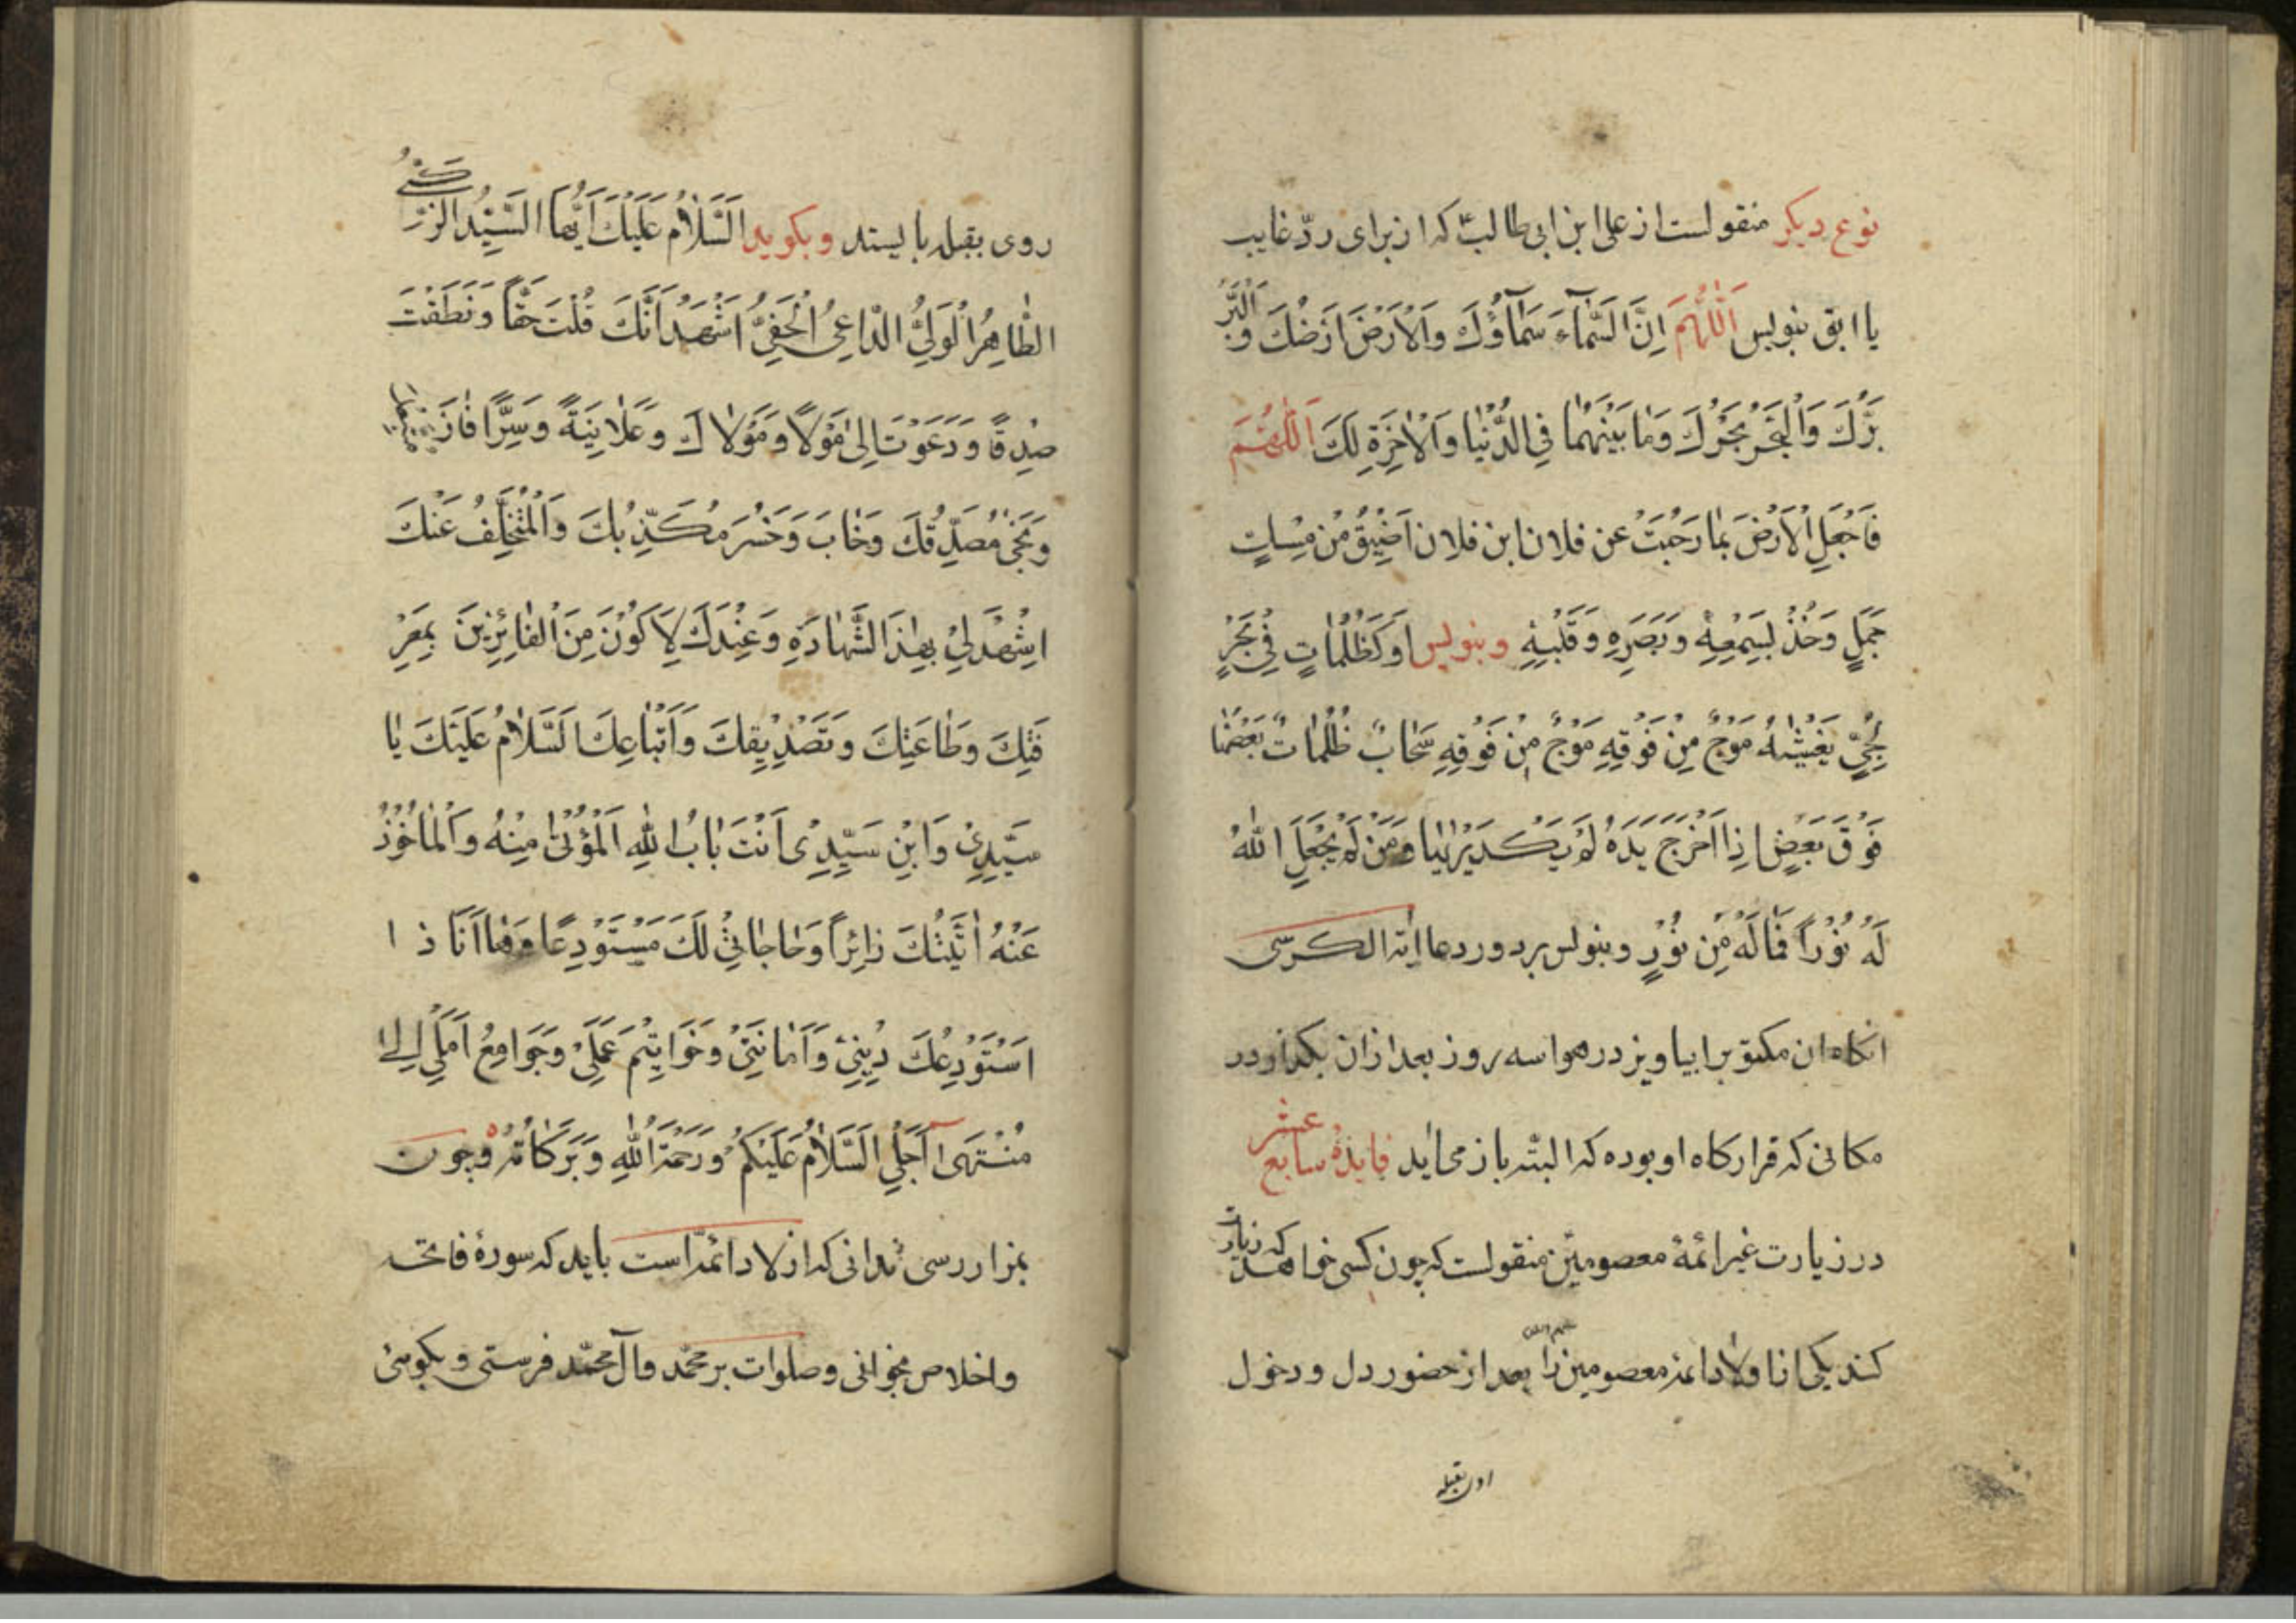 نوع دیکر منقولست از علی ابن ابی طالب که از برای ردّ غایب
یا ابق بنویس اَللّٰهُمَّ اِنَّ السَّمٰآءَ سَمٰآؤُكَ وَالْاَرْضَ اَرْضُكَ وَ الْبَرَّ
بَرُّكَ وَالْبَحْرَ بَحْرُكَ وَمٰا بَيْنَهُمٰا فِي الدُّنْيٰا وَالْاٰخِرَةِ لَكَ اَللّٰهُمَّ
فَاجْعَلِ الْاَرْضَ بِمٰا رَحُبَتْ عن فلان ابن فلان اَضْيَقُ مِنْ مِسْاتٍ
جَمَلٍ وَخُذْ لِسَمْعِهِ وَبَصَرِهِ وَقَلْبِهِ وبنویس اَوْ كَظُلُمٰاتٍ فِي بَحْرٍ
لُجِّيٍّ يَغْشٰهُ مَوْجٌ مِنْ فَوْقِهِ مَوْجٌ مِنْ فَوْقِهِ سَحٰابٌ ظُلُمٰاتٌ بَعْضُهٰا
فَوْقَ بَعْضٍ اِذٰا اَخْرَجَ يَدَهُ لَمْ يَكَدْ يَرٰيهٰا وَمَنْ لَمْ يَجْعَلِ اللّٰهُ
لَهُ نُوْراً فَمٰا لَهُ مِنْ نُوْرٍ وبنویس بر دور دعا ایة الکرسی
انکاه ان مکتوبرا بیاویز در هوا سه روز بعد از ان بکذار در
مکانی که قرارکاه او بوده که البتّه باز می‌اید فایدهٔ سابع عشر
در زیارت غیر ائمهٔ معصومین منقولست که چون کسی خواهد که زیارت
کند یکی از اولاد ائمه معصومین را بعد از حضور دل و دخول
روی بقبله بایستد وبکوید اَلسَّلاٰمُ عَلَيْكَ اَيُّهَا السَّيِّدُ الزَّكِيُّ
الطّٰاهِرُ الْوَلِيُّ الدّٰاعِيُ الْحَفِيُّ اَشْهَدُ اَنَّكَ قُلْتَ حَقّاً وَنَطَقْتَ
صِدْقاً وَدَعَوْتَ اِلىٰ مَوْلاٰ وَمَوْلاٰكَ وَعَلاٰنِيَةً وَسِرّاً فٰازَ
وَنَجىٰ مُصَدِّقُكَ وَخٰابَ وَخَسِرَ مُكَذِّبُكَ وَالْمُتَخَلِّفُ عَنْكَ
اِشْهَدْ لِيْ بِهٰذَا الشَّهٰادَةِ وَعِنْدَكَ لِاَكُوْنَ مِنَ الْفٰائِزِينَ بِمَعْرِ
فَتِكَ وَطٰاعَتِكَ وَتَصْدِيْقِكَ وَاَتْبٰاعِكَ اَلسَّلاٰمُ عَلَيْكَ يٰا
سَيِّدِيْ وَابْنِ سَيِّدِىْ اَنْتَ بٰابُ اللّٰهِ الْمُؤْتىٰ مِنْهُ وَالْمٰأخُوْذُ
عَنْهُ اَتَيْتُكَ زٰائِراً وَحٰاجٰاتِيْ لَكَ مُسْتَوْدِعًا وَهٰا اَنَا ذ ا
اَسْتَوْدِعُكَ دِيْنِيْ وَاَمٰانَتِيْ وَخَوٰاتِيْمَ عَمَلِيْ وَجَوٰامِعُ اَمَلِيْ اِلىٰ
مُنْتَهىٰ اَجَلِي اَلسَّلاٰمُ عَلَيْكُمْ وَرَحْمَةُ اللّٰهِ وَبَرَكٰاتُهُ وچون
بمزار رسی ندانی که از لاد ائمه است باید که سورهٔ فاتحه
واخلاص بخوانی وصلوات بر محمّد وال محمّد فرستی وبکوئی